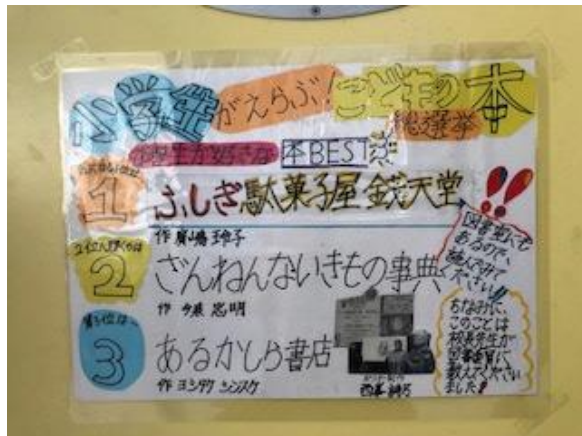 小学生がえらぶ!こどもの本
総選挙
小学生が好きな本BEST3
1
ふしぎ駄菓子屋 銭天堂
作 廣嶋玲子
2
ざんねんないきもの事典
作 今泉忠明
第3位は…
3
あるかしら書店
作 ヨシタケ シンスケ
図書室にも
あるので、
読んでみて
ください!!
ちなみに、
このことは
校長先生が
図書委員に
教えてください
ました!